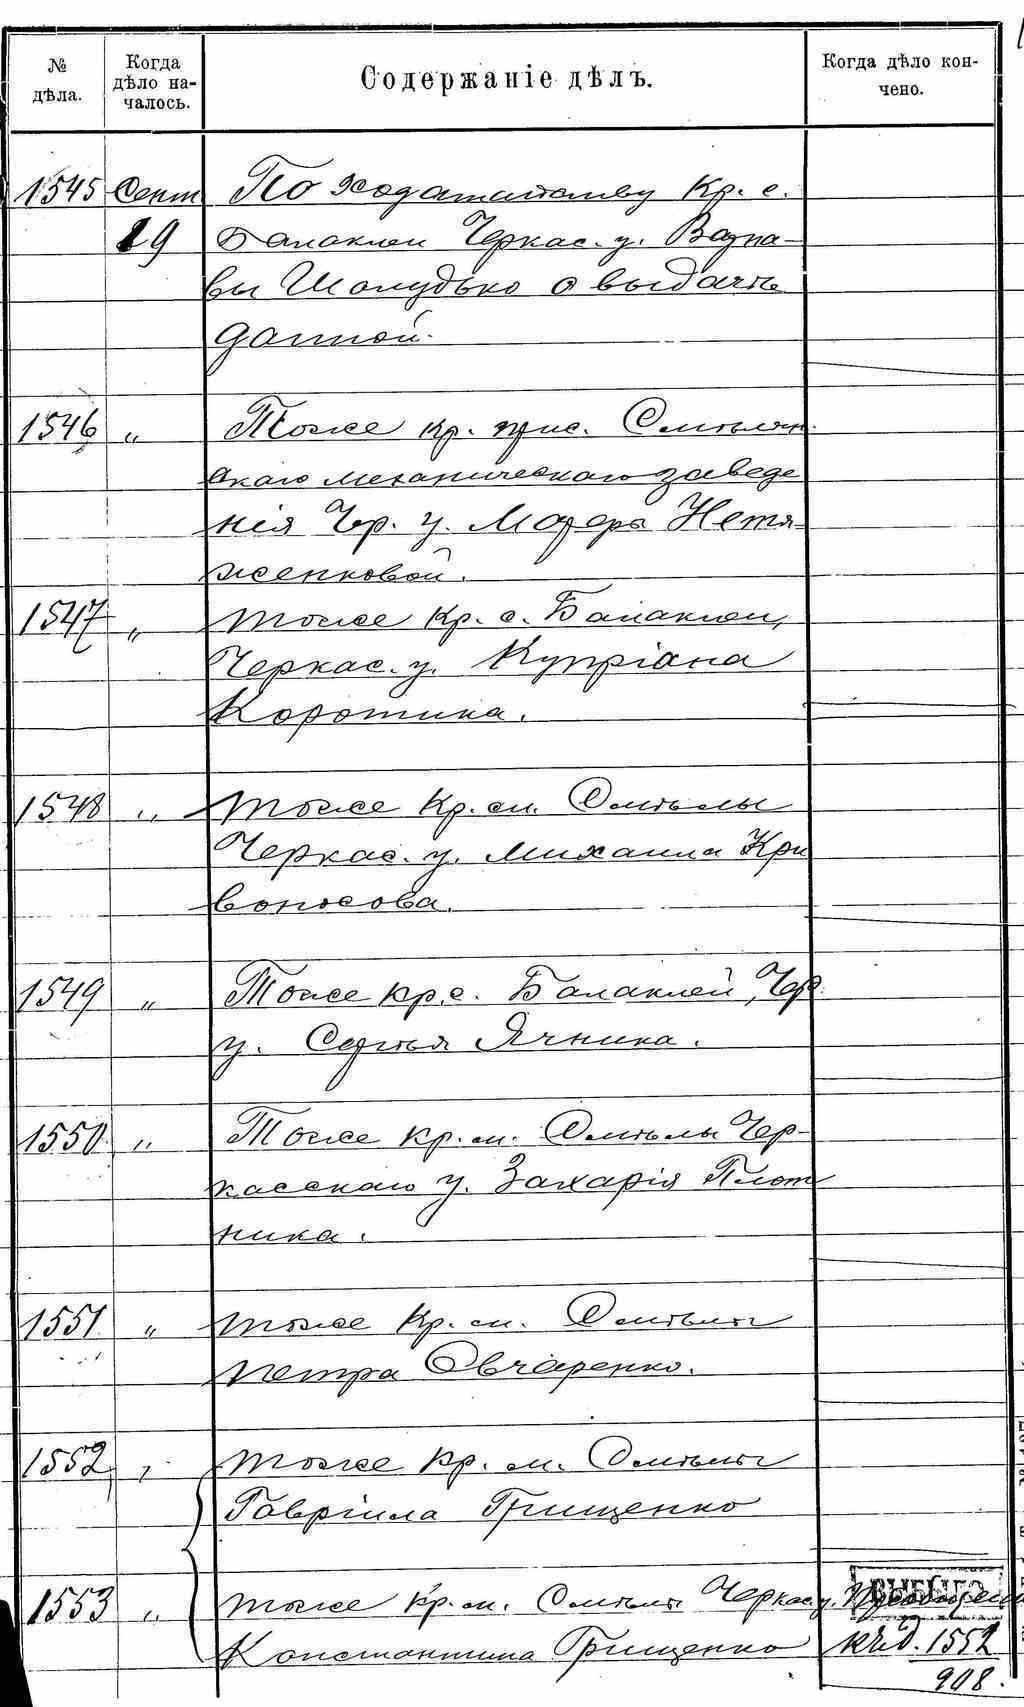 № дѣла.
Когда дѣло на-чалось.
Содержаніе дѣлъ.
Когда дѣло кон-чено.
1545 Сент. По ходатайству Кр. с.
19 Балаклеи Черкас. у. Варва-
ры Шолудько о выдачѣ
данной.
1546 " Тоже кр. прис. Смѣлян.
скаго механическаго заведе
нія Чер. у. Марфы Нетя-
женковой.
1547 " тоже Кр. с. Балаклеи,
Черкас. у. Купріана
Коротика.
1548 " тоже Кр. м. Смѣлы
Черкас. у. Михаила Кри
воносова.
1549 " Тоже кр. с. Балаклей, Чер.
у. Сергѣя Ячника.
1550 " Тоже кр. м. Смѣлы Чер-
касскаго у. Захарія Плот
ника.
1551 " тоже Кр. м. Смѣлы
Петра Овчаренко.
1552 " тоже Кр. м. Смѣлы
Гавріила Грищенко
ВЫБЫЛО
1553 " тоже Кр. м. Смѣлы Черкас. у.
Константина Грищенко к № д. 1552
908.